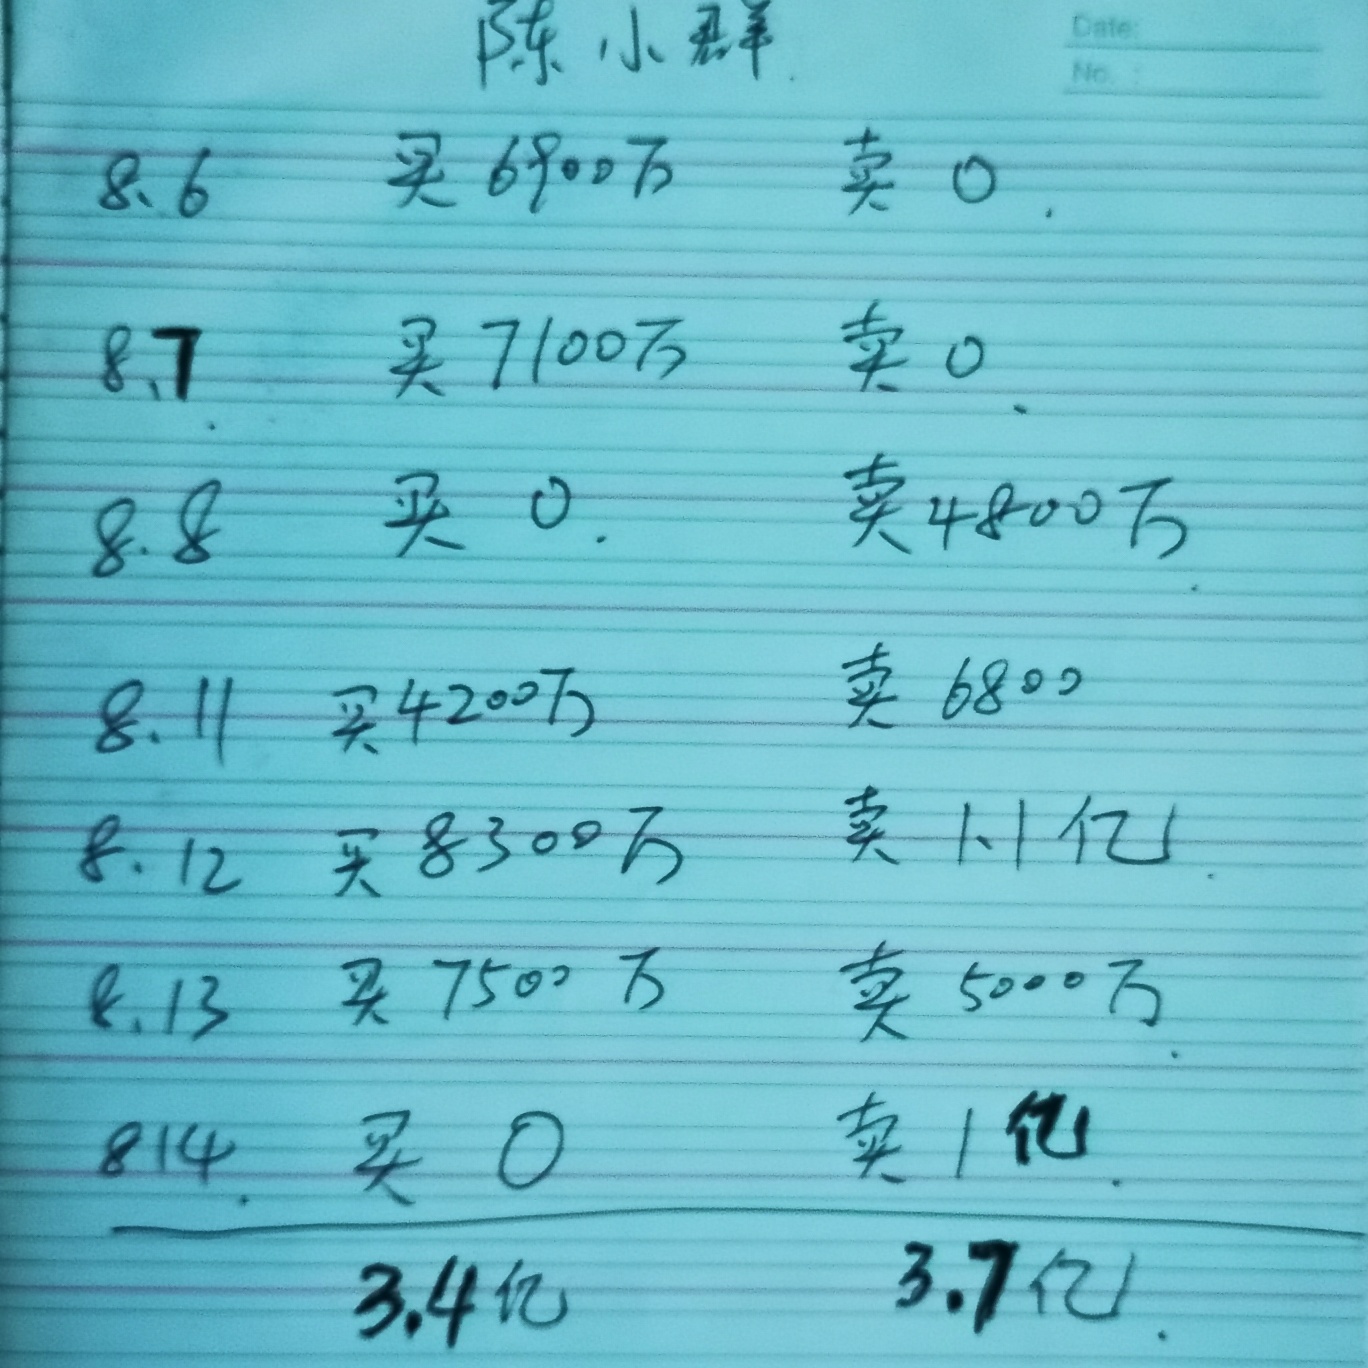 陈小群
Date:
No. :
8.6 买 6900万 卖 0.
8.7. 买 7100万 卖 0.
8.8 买 0. 卖 4800万.
8.11 买 4200万 卖 6800
8.12 买 8300万 卖 1.1亿.
8.13 买 7500万 卖 5000万.
814. 买 0 卖 1亿.
3.4亿 3.7亿.